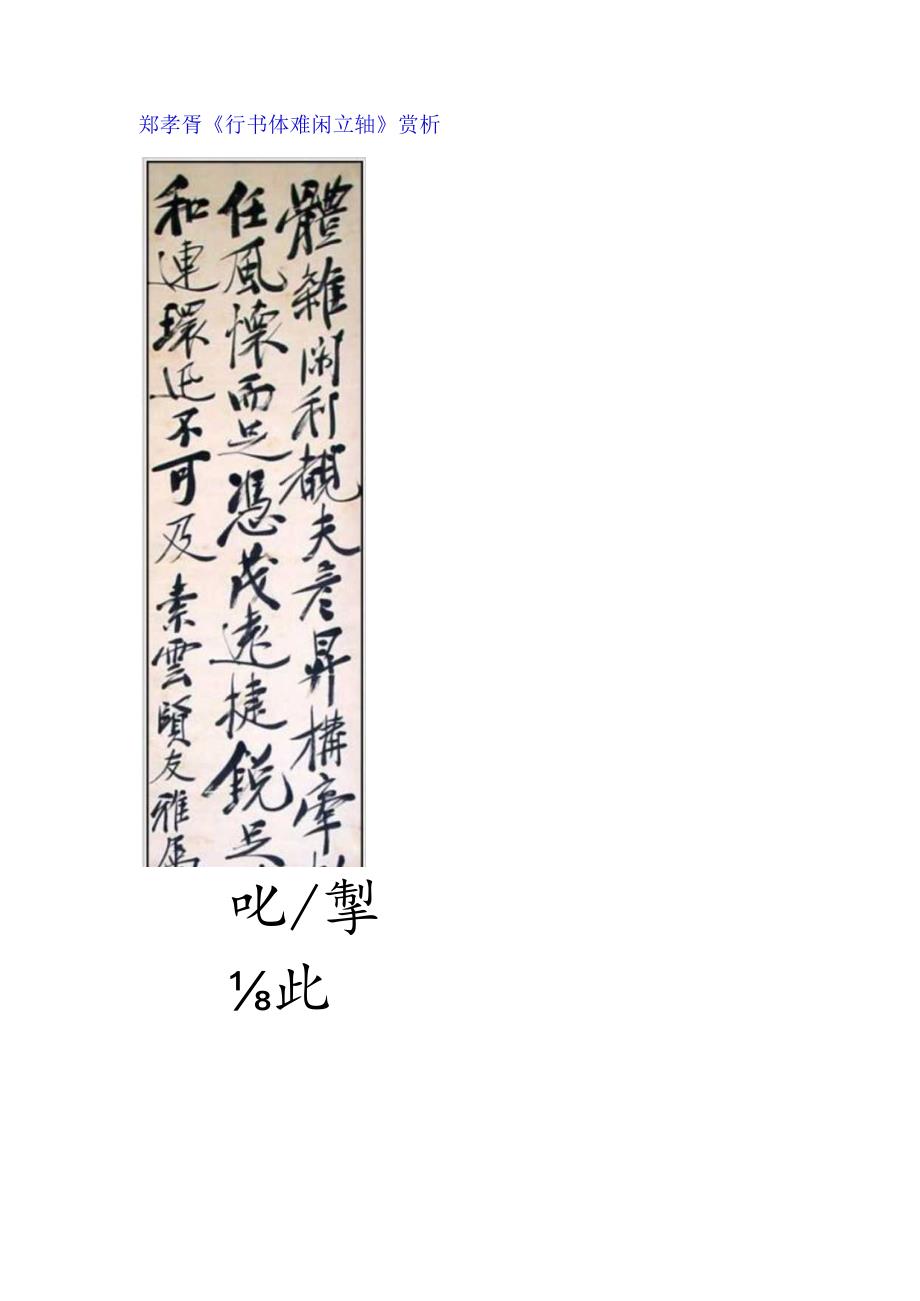 郑孝胥《行书体难闲立轴》赏析
體雜闲利覩夫彦昇構牽
任風懷而足憑茂遠捷鋭足
和連環迅不可及
素雲賢友雅属
叱/掣
⅛此